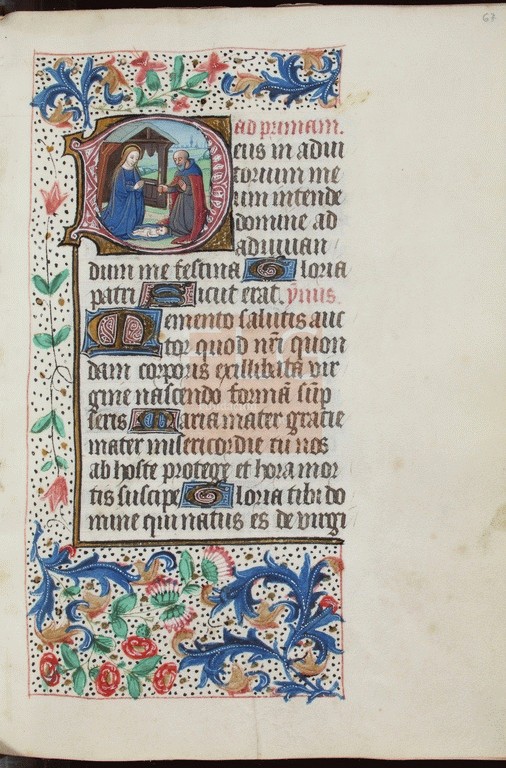 67
ad primam.
Deus in adiu
torium me
um intende
domine ad
adiuuan
dum me festina Gloria
patri Sicut erat. ymis.
Memento salutis auc
tor quod nr̄i quon
dam corporis exillibata vir
gine nascendo formā sūp
seris Maria mater gracie
mater misericordie tu nos
ab hoste protege et hora mor
tis suscipe Gloria tibi do
mine qui natus es de virgi